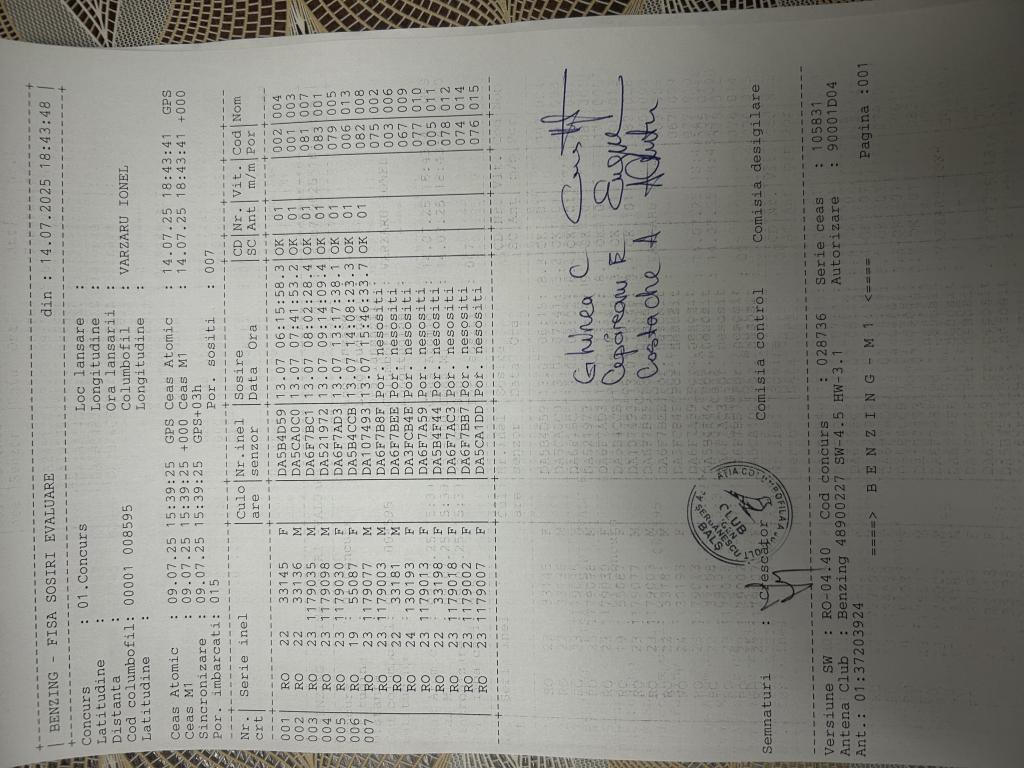 | BENZING - FISA SOSIRI EVALUARE din : 14.07.2025 18:43:48 |
Concurs : 01.Concurs Loc lansare :
Latitudine : Longitudine :
Distanta : Ora lansarii :
Cod columbofil: 00001 008595 Columbofil : VARZARU IONEL
Latitudine : Longitudine :
Ceas Atomic : 09.07.25 15:39:25 GPS Ceas Atomic : 14.07.25 18:43:41 GPS
Ceas M1 : 09.07.25 15:39:25 +000 Ceas M1 : 14.07.25 18:43:41 +000
Sincronizare : 09.07.25 15:39:25 GPS+03h
Por. imbarcati: 015 Por. sositi : 007
Nr.| Serie inel Cuio|Nr.inel |Sosire |CD|Nr.|Vit.|Cod|Nom
crt| |are |senzor |Data Ora |SC|Ant|m/m|Por|
001 | RO 22 33145 F |DA5B4D59|13.07 06:15:58.3|OK| 01 | 002 004
002 | RO 22 33136 M |DA5CA0C0|13.07 07:41:53.2|OK| 01 | 001 003
003 | RO 23 1179035 M |DA6F7BC1|13.07 08:02:28.4|OK| 01 | 081 007
004 | RO 23 1179098 M |DA521972|13.07 09:14:09.4|OK| 01 | 083 001
005 | RO 23 1179030 F |DA6F7AD3|13.07 13:17:38.1|OK| 01 | 079 005
006 | RO 19 55087 F |DA5B4CCB|13.07 14:08:23.3|OK| 01 | 006 013
007 | RO 23 1179077 M |DA1D7493|13.07 15:46:33.7|OK| 01 | 082 008
RO 23 1179003 M |DA6F7B8F|Por. nesositi 075 002
RO 22 33181 M |DA6F7BEE|Por. nesositi 003 006
RO 24 1130193 F |DA3FCB4E|Por. nesositi 067 009
RO 23 1179013 F |DA6F7A59|Por. nesositi 077 010
RO 22 33198 F |DA5B4F44|Por. nesositi 005 011
RO 23 1179018 F |DA6F7AC3|Por. nesositi 078 012
RO 23 1179002 F |DA6F7BB7|Por. nesositi 074 014
RO 23 1179007 F |DA5CA1DD|Por. nesositi 076 015
Ghinea C
E
Costache A
CLUB
"GEN.
SERDANESCU"
BALS
Semnaturi : Crescator Comisia control Comisia desigilare
Versiune SW : RO-04.40 Cod concurs : 028736 Serie ceas : 105831
Antena Club : Benzing 48900227 SW-4.5 HW-3.1 Autorizare : 90001D04
Ant.: 01:37203924
====> B E N Z I N G - M 1 <==== Pagina :001